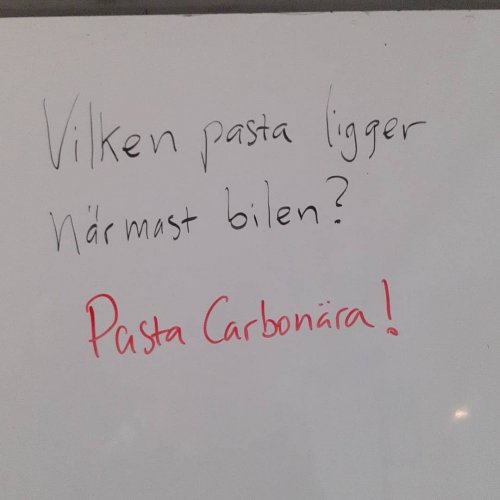 Vilken pasta ligger
närmast bilen?
Pasta Carbonära!